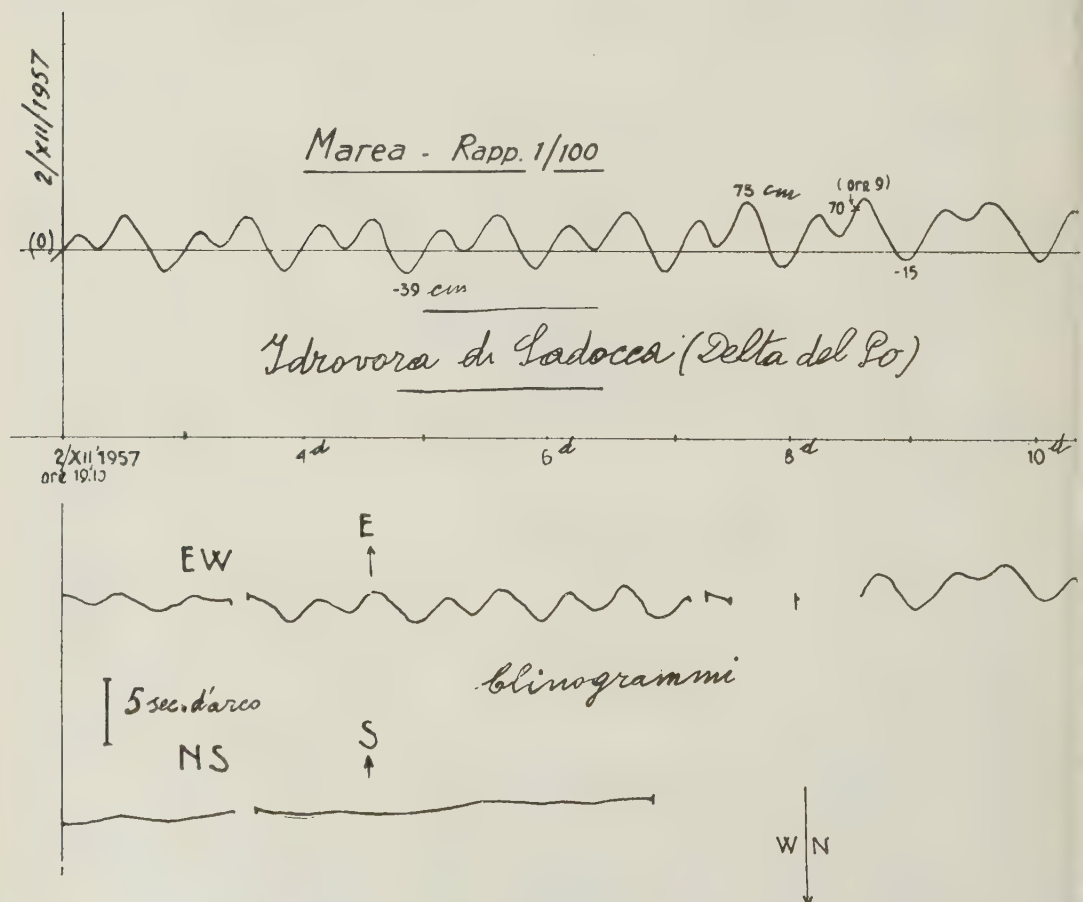 2/XII/1957
Marea - Rapp. 1/100
(0)
75 cm
(ore 9)
70
-39 cm
-15
Idrovora di Sadocca (Delta del Po)
2/XII 1957
ore 19.15
4d
6d
8d
10d
E
EW
5 sec. d'arco
Clinogrammi
S
NS
W N